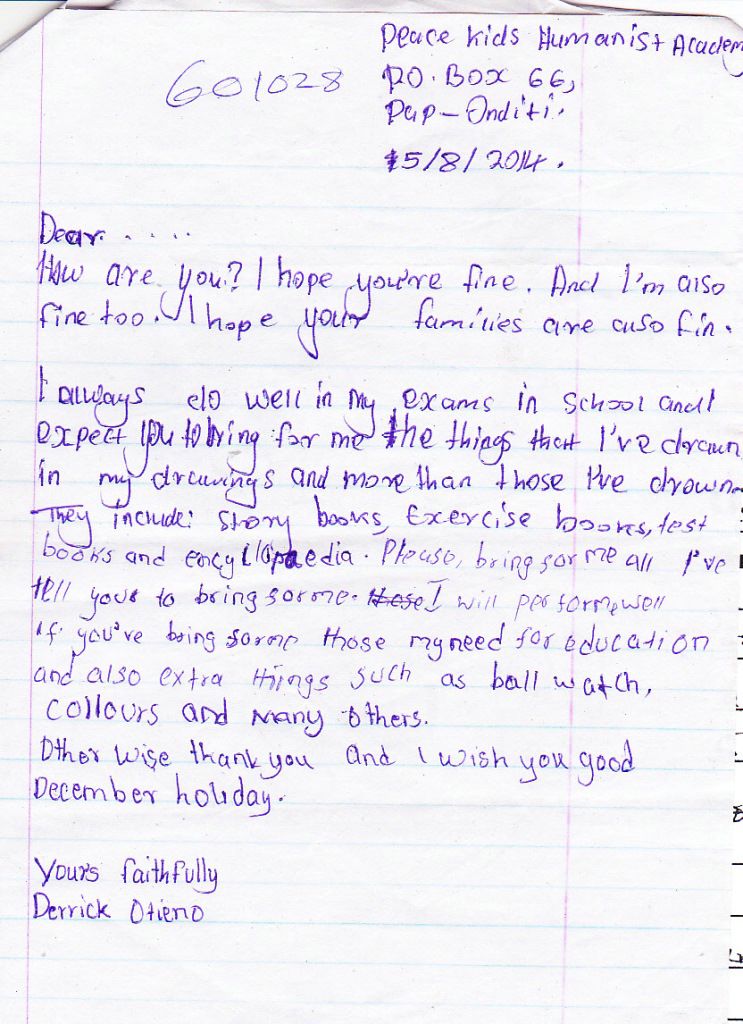 Peace Kids Humanist Academ
601028
P.O. BOX 66,
Pap-Onditi.
15/8/2014.
Dear.....
How are you? I hope you're fine. And I'm also
fine too. I hope your families are also fin.
I always do well in my exams in school and I
expect you to bring for me the things that I've drawn
in my drawings and more than those I've drown
They include: Story books, Exercise books, test
books and encyllopaedia. Please, bring for me all I've
tell your to bring for me. These I will perform well
if you've bring for me those my need for education
and also extra things such as ball watch,
collours and many others.
Other wise thank you and I wish you good
December holiday.
Yours faithfully
Derrick Otieno